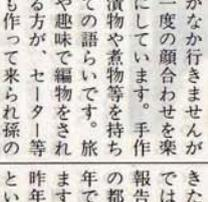 がなか行きませんが
一度の顔合わせを楽
にしています。手作
漬物や煮物等を持ち
ての語らいです。旅
や趣味で編物をされ
る方が、セーター等
も作って来られ孫の
きた
では
報告
の都
年で
ます
昨年
とい